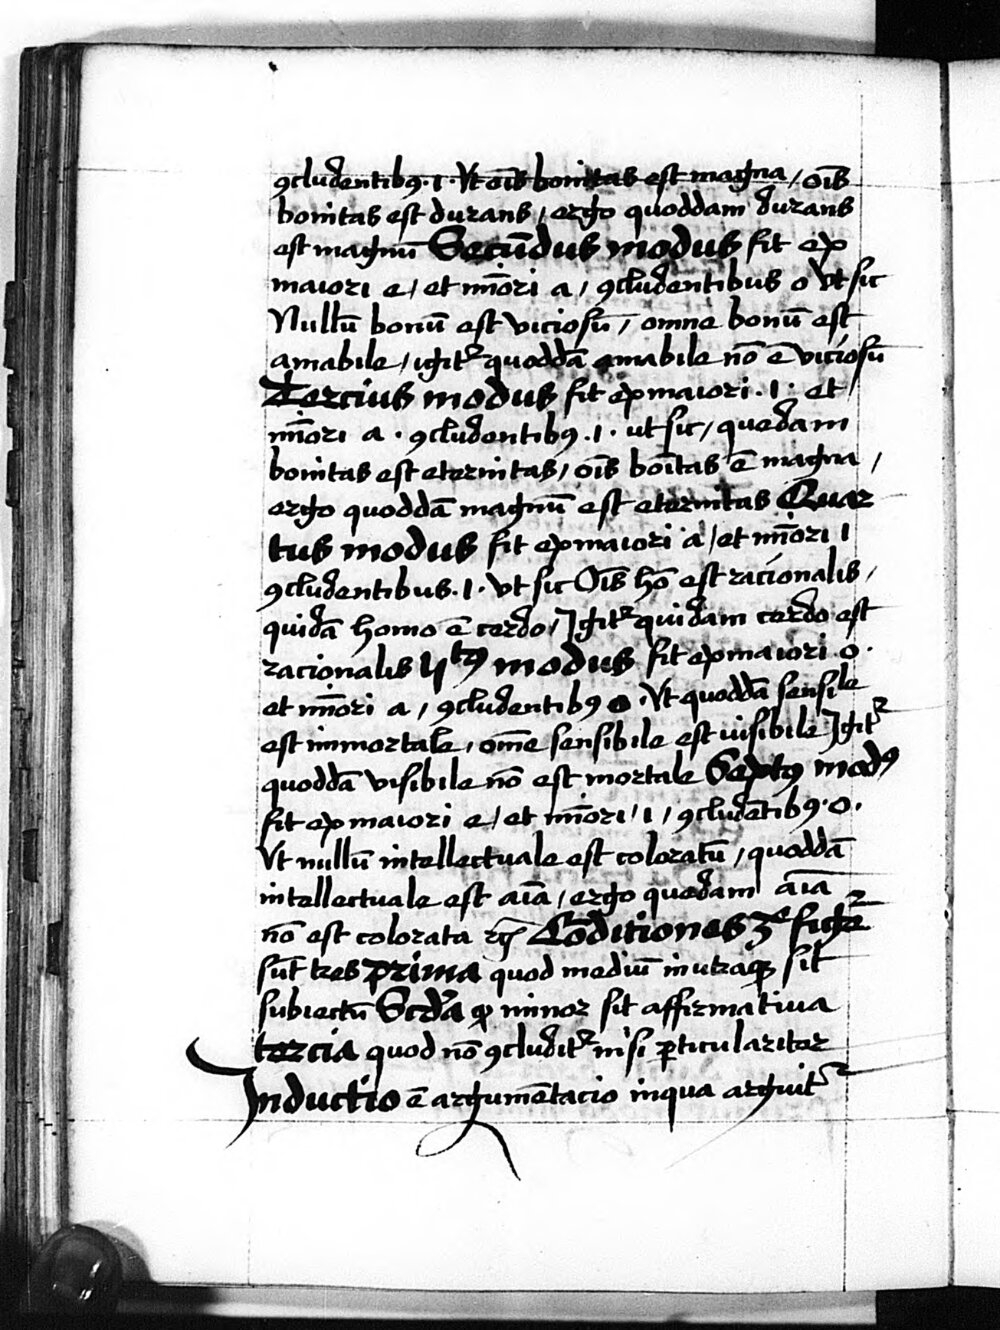 ꝯcludentibꝰ · I · Vt oīs bonitas est magna / oīs
bonitas est durans / ergo quoddam durans
est magnū Secūdus modus fit ex
maiori e / et mīori a / ꝯcludentibus o Vt sic
Nullū bonū est viciosū / omne bonū est
amabile / igitᷣ quoddā amabile nō ē viciosū
Tercius modus fit ex maiori · I · et
mīori a · ꝯcludentibꝰ · I · ut sic / quedam
bonitas est eternitas / oīs boītas ē magna /
ergo quoddā magnū est eternitas Quar
tus modus fit ex maiori a / et mīori I
ꝯcludentibus · I · Vt sic Oīs hō est racionalis /
quidā homo ē cerdo / Igitᷣ quidam cerdo est
racionalis ytꝰ modus fit ex maiori · o ·
et mīori a / ꝯcludentibꝰ o · Vt quoddā sensile
est immortale / ome sensibile est uisibile Igitᷣ
quoddā visibile nō est mortale Sextꝰ modꝰ
fit ex maiori e / et mīori / i / ꝯcludētibꝰ · o ·
Vt nullū intellectuale est coloratū / quoddā
intellectuale est aīa / ergo quedam aīa
nō est colorata Cōditiones ʒͤ figᷣe
sūt tres prima quod mediū in utraqꝫ sit
subiectū Scdā ꝙ minor sit affirmatiua
tercia quod nō ꝯcluditᷣ nisi ꝑticulariter
Inductio ē argumētacio in qua arguitᷣ